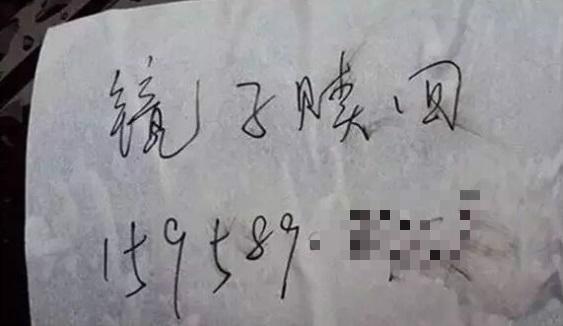 镜子赎回
159589